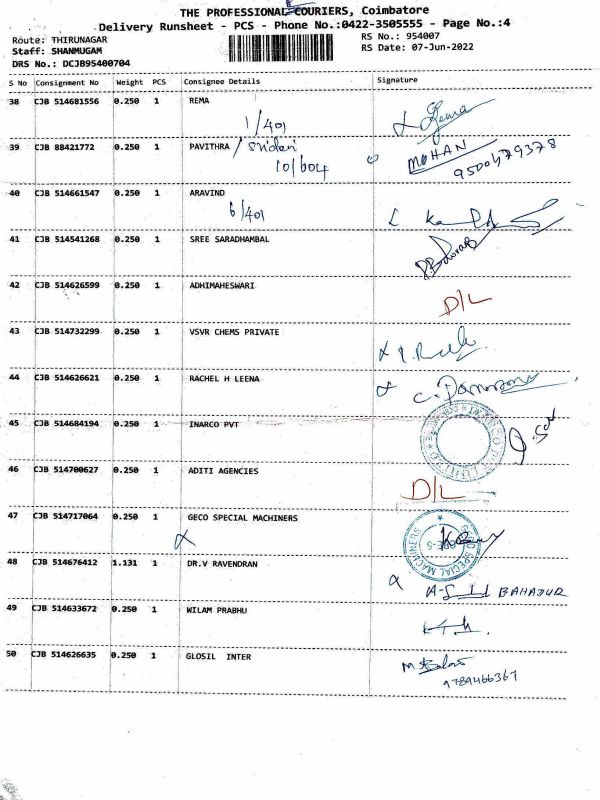 THE PROFESSIONAL COURIERS, Coimbatore
Delivery Runsheet - PCS - Phone No.:0422-3505555 - Page No.:4
Route: THIRUNAGAR
RS No.: 954007
Staff: SHANMUGAM
RS Date: 07-Jun-2022
DRS No.: DCJB95400704
S No Consignment No Weight PCS Consignee Details Signature
38 CJB 514681556 0.250 1 REMA
1/401 Rema
39 CJB 88421772 0.250 1 PAVITHRA / Sridevi
10/604 MOHAN
9500479378
40 CJB 514661547 0.250 1 ARAVIND
6/401
41 CJB 514541268 0.250 1 SREE SARADHAMBAL
42 CJB 514626599 0.250 1 ADHIMAHESWARI
D/L
43 CJB 514732299 0.250 1 VSVR CHEMS PRIVATE
44 CJB 514626621 0.250 1 RACHEL H LEENA
45 CJB 514684194 0.250 1 INARCO PVT
46 CJB 514700627 0.250 1 ADITI AGENCIES
D/L
47 CJB 514717064 0.250 1 GECO SPECIAL MACHINERS
SPECIAL MACHINERS
48 CJB 514676412 1.131 1 DR.V RAVENDRAN
BAHADUR
49 CJB 514633672 0.250 1 WILAM PRABHU
50 CJB 514626635 0.250 1 GLOSIL INTER
9789466367